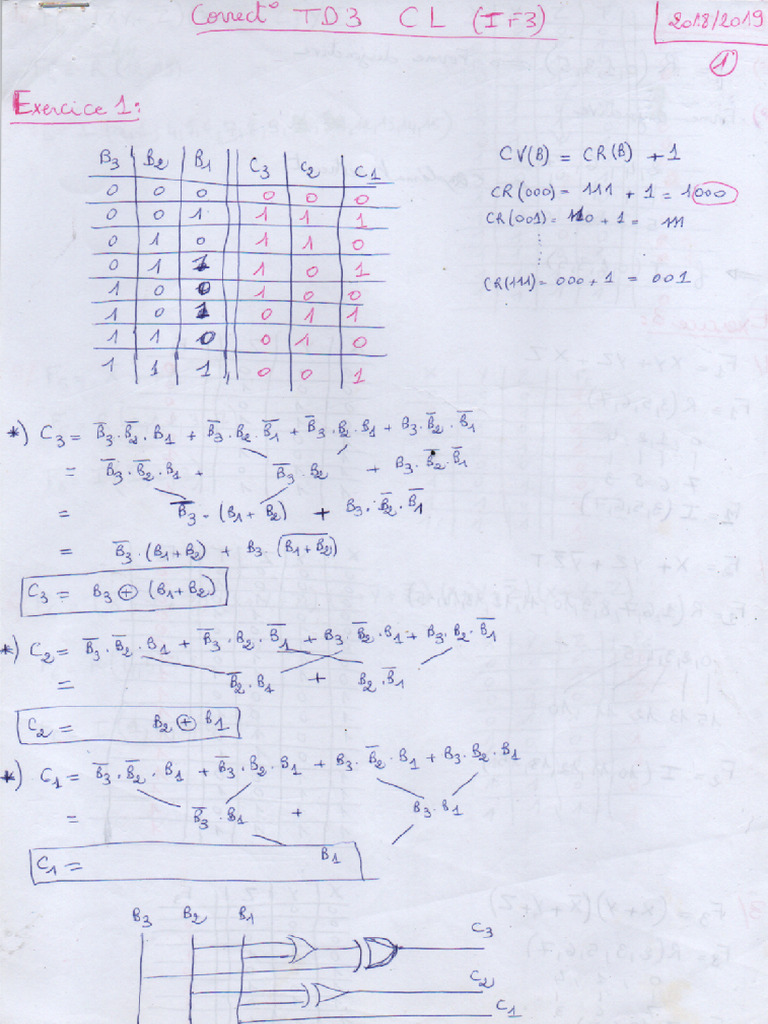 Correct° TD3 CL (IF3)
2018/2019
1
Exercice 1:
B3 B2 B1 C3 C2 C1
0 0 0 0 0 0
0 0 1 1 1 1
0 1 0 1 1 0
0 1 1 1 0 1
1 0 0 1 0 0
1 0 1 0 1 1
1 1 0 0 1 0
1 1 1 0 0 1
CV(B) = CR(B) + 1
CR(000) = 111 + 1 = 1000
CR(001) = 110 + 1 = 111
CR(111) = 000 + 1 = 001
*) C3 = B̅3·B̅2·B1 + B̅3·B2·B̅1 + B̅3·B2·B1 + B3·B̅2·B̅1
= B̅3·B̅2·B1 + B̅3·B2 + B3·B̅2·B̅1
= B̅3·(B1+B2) + B3·B̅2·B̅1
= B̅3·(B1+B2) + B3·(B̅1̅+̅B̅2̅)
C3 = B3 ⊕ (B1+B2)
*) C2 = B̅3·B̅2·B1 + B̅3·B2·B̅1 + B3·B̅2·B1 + B3·B2·B̅1
= B̅2·B1 + B2·B̅1
C2 = B2 ⊕ B1
*) C1 = B̅3·B̅2·B1 + B̅3·B2·B1 + B3·B̅2·B1 + B3·B2·B1
= B̅3·B1 + B3·B1
C1 = B1
B3 B2 B1
C3
C2
C1